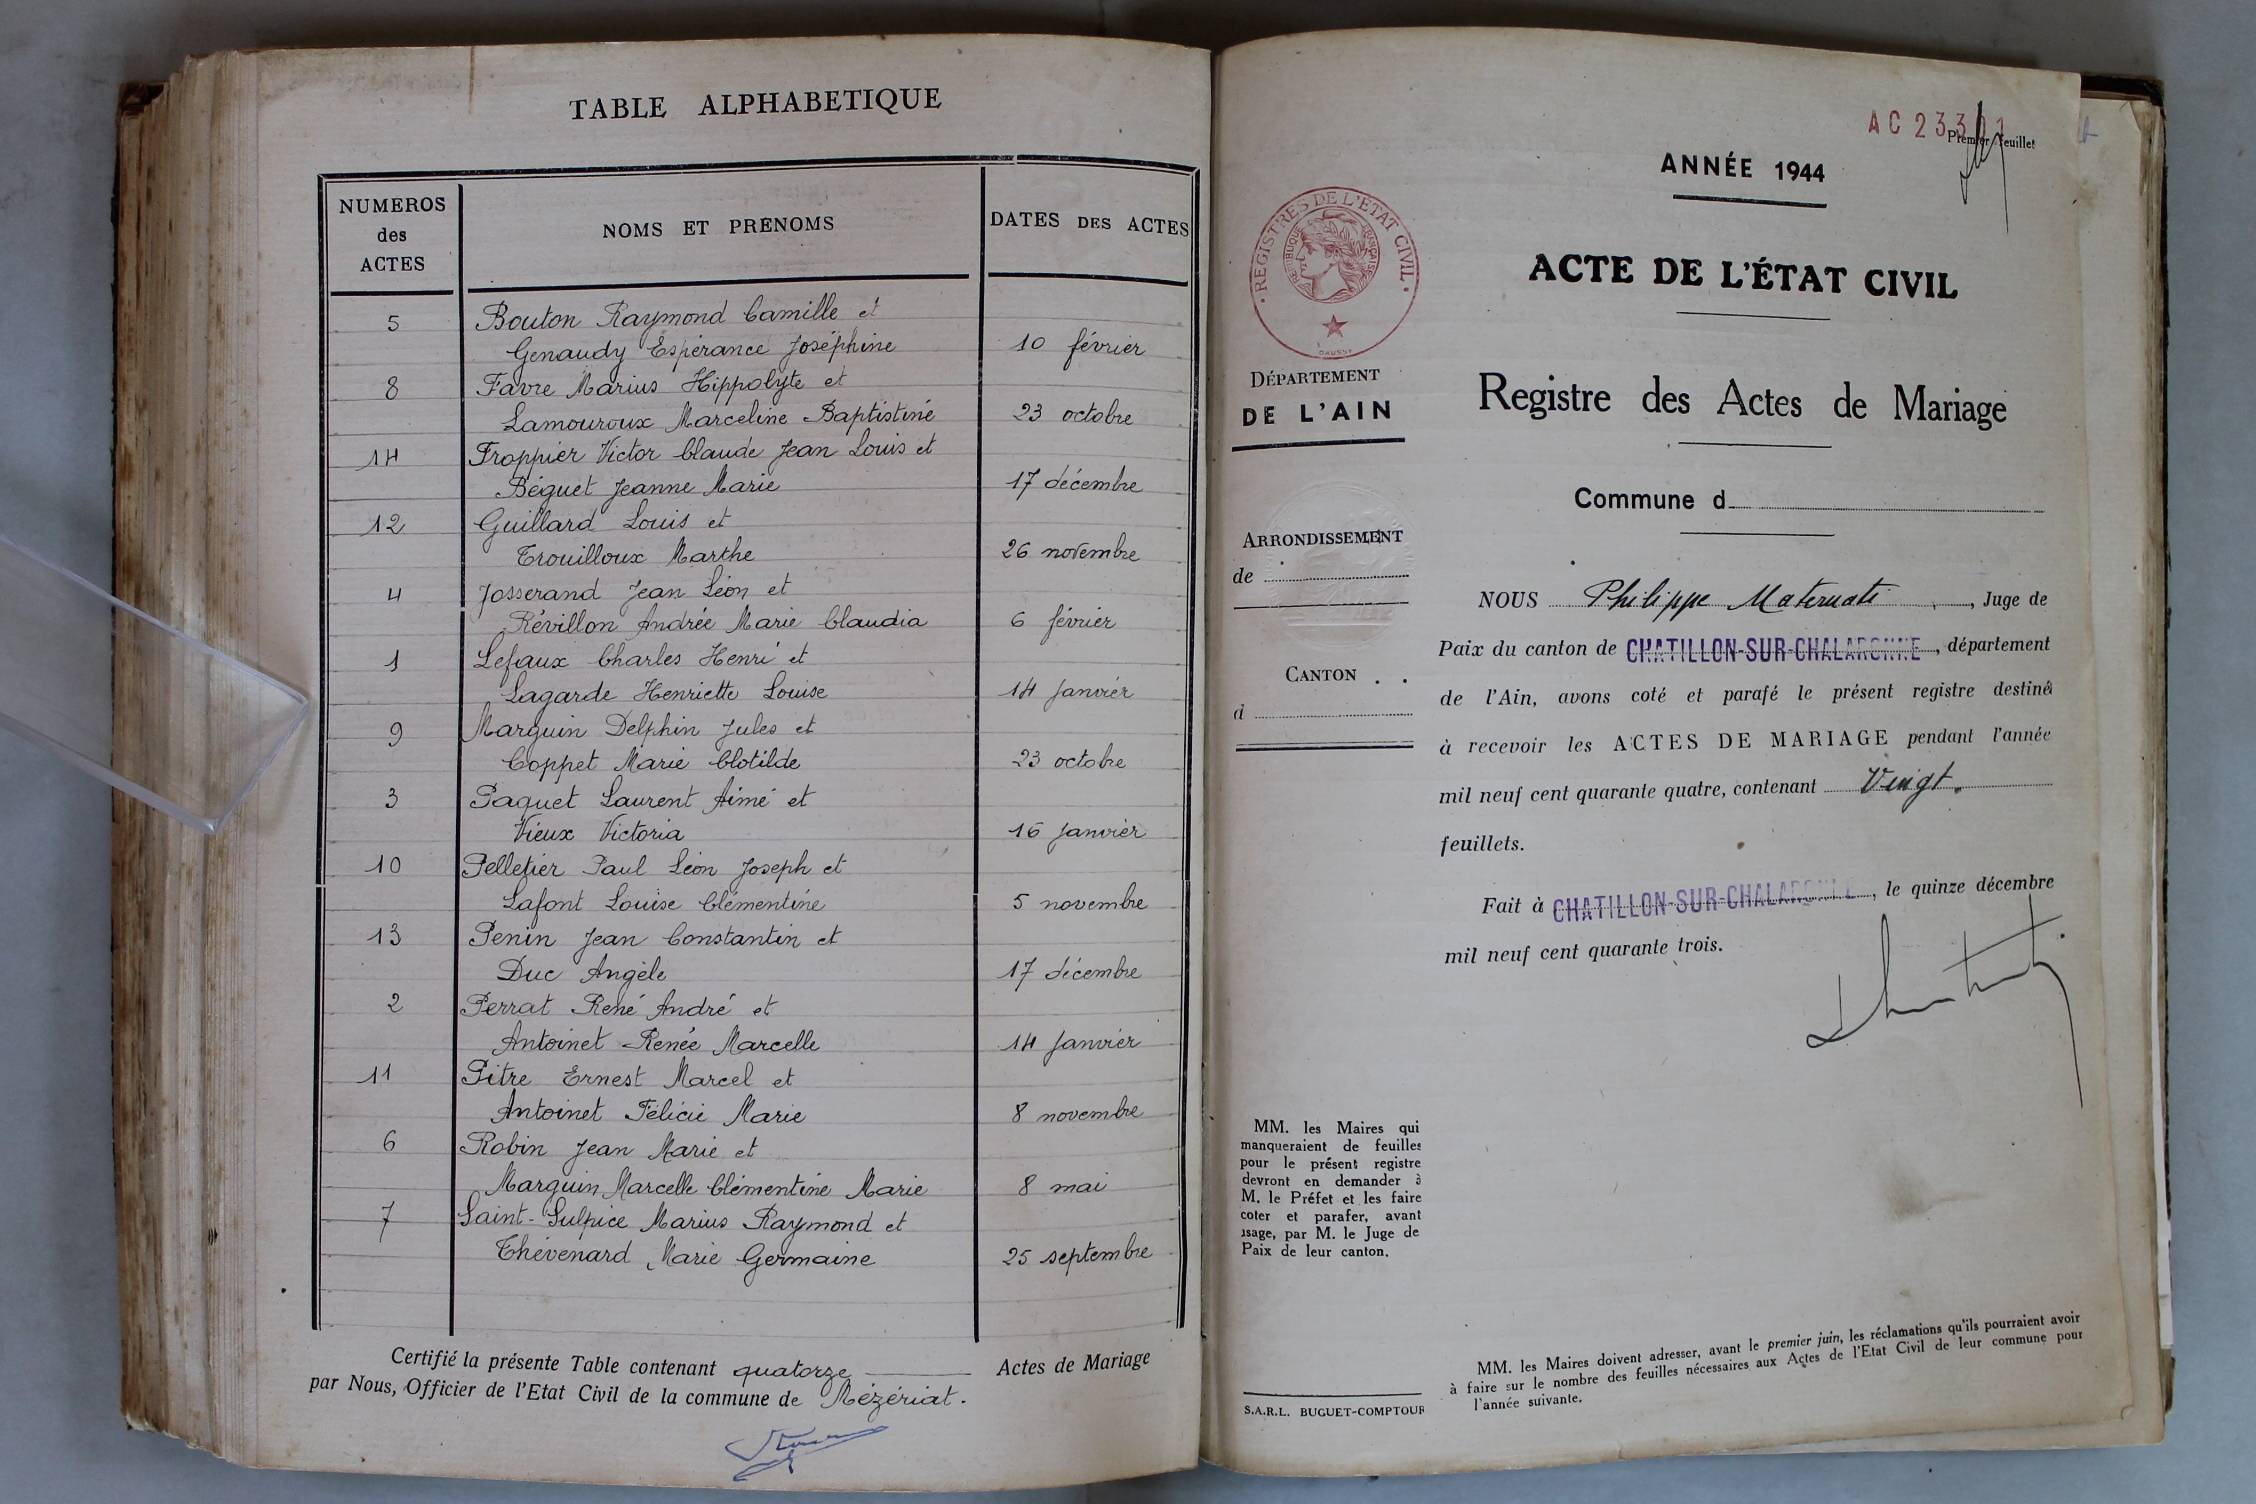 TABLE ALPHABETIQUE
NUMEROS des ACTES
NOMS ET PRENOMS
DATES DES ACTES
5 Bouton Raymond Camille et
Genaudy Espérance Joséphine 10 février
8 Favre Marius Hippolyte et
Lamouroux Marceline Baptistine 23 octobre
14 Froppier Victor Claude Jean Louis et
Béguet Jeanne Marie 17 décembre
12 Guillard Louis et
Trouilloux Marthe 26 novembre
4 Josserand Jean Léon et
Révillon Andrée Marie Claudia 6 février
1 Lefaux Charles Henri et
Lagarde Henriette Louise 14 Janvier
9 Marguin Delphin Jules et
Coppet Marie Clotilde 23 octobre
3 Paquet Laurent Aimé et
Vieux Victoria 16 Janvier
10 Pelletier Paul Léon Joseph et
Lafont Louise Clémentine 5 novembre
13 Penin Jean Constantin et
Duc Angèle 17 décembre
2 Perrat René André et
Antoinet Renée Marcelle 14 Janvier
11 Pitre Ernest Marcel et
Antoinet Félicie Marie 8 novembre
6 Robin Jean Marie et
Marguin Marcelle Clémentine Marie 8 mai
7 Saint-Sulpice Marius Raymond et
Thévenard Marie Germaine 25 septembre
Certifié la présente Table contenant quatorze Actes de Mariage
par Nous, Officier de l'Etat Civil de la commune de Mézériat.
AC 233
Premier feuillet
ANNÉE 1944
REGISTRES DE L'ETAT CIVIL
REPUBLIQUE FRANÇAISE
ACTE DE L'ÉTAT CIVIL
DÉPARTEMENT
DE L'AIN
Registre des Actes de Mariage
Commune d
ARRONDISSEMENT
de
CANTON
d
NOUS Philippe Maternati, Juge de
Paix du canton de CHATILLON-SUR-CHALARONNE, département
de l'Ain, avons coté et parafé le présent registre destiné
à recevoir les ACTES DE MARIAGE pendant l'année
mil neuf cent quarante quatre, contenant Vingt.
feuillets.
Fait à CHATILLON-SUR-CHALARONNE, le quinze décembre
mil neuf cent quarante trois.
MM. les Maires qui
manqueraient de feuilles
pour le présent registre
devront en demander à
M. le Préfet et les faire
coter et parafer, avant
usage, par M. le Juge de
Paix de leur canton.
S.A.R.L. BUGUET-COMPTOUR
MM. les Maires doivent adresser, avant le premier juin, les réclamations qu'ils pourraient avoir
à faire sur le nombre des feuilles nécessaires aux Actes de l'Etat Civil de leur commune pour
l'année suivante.